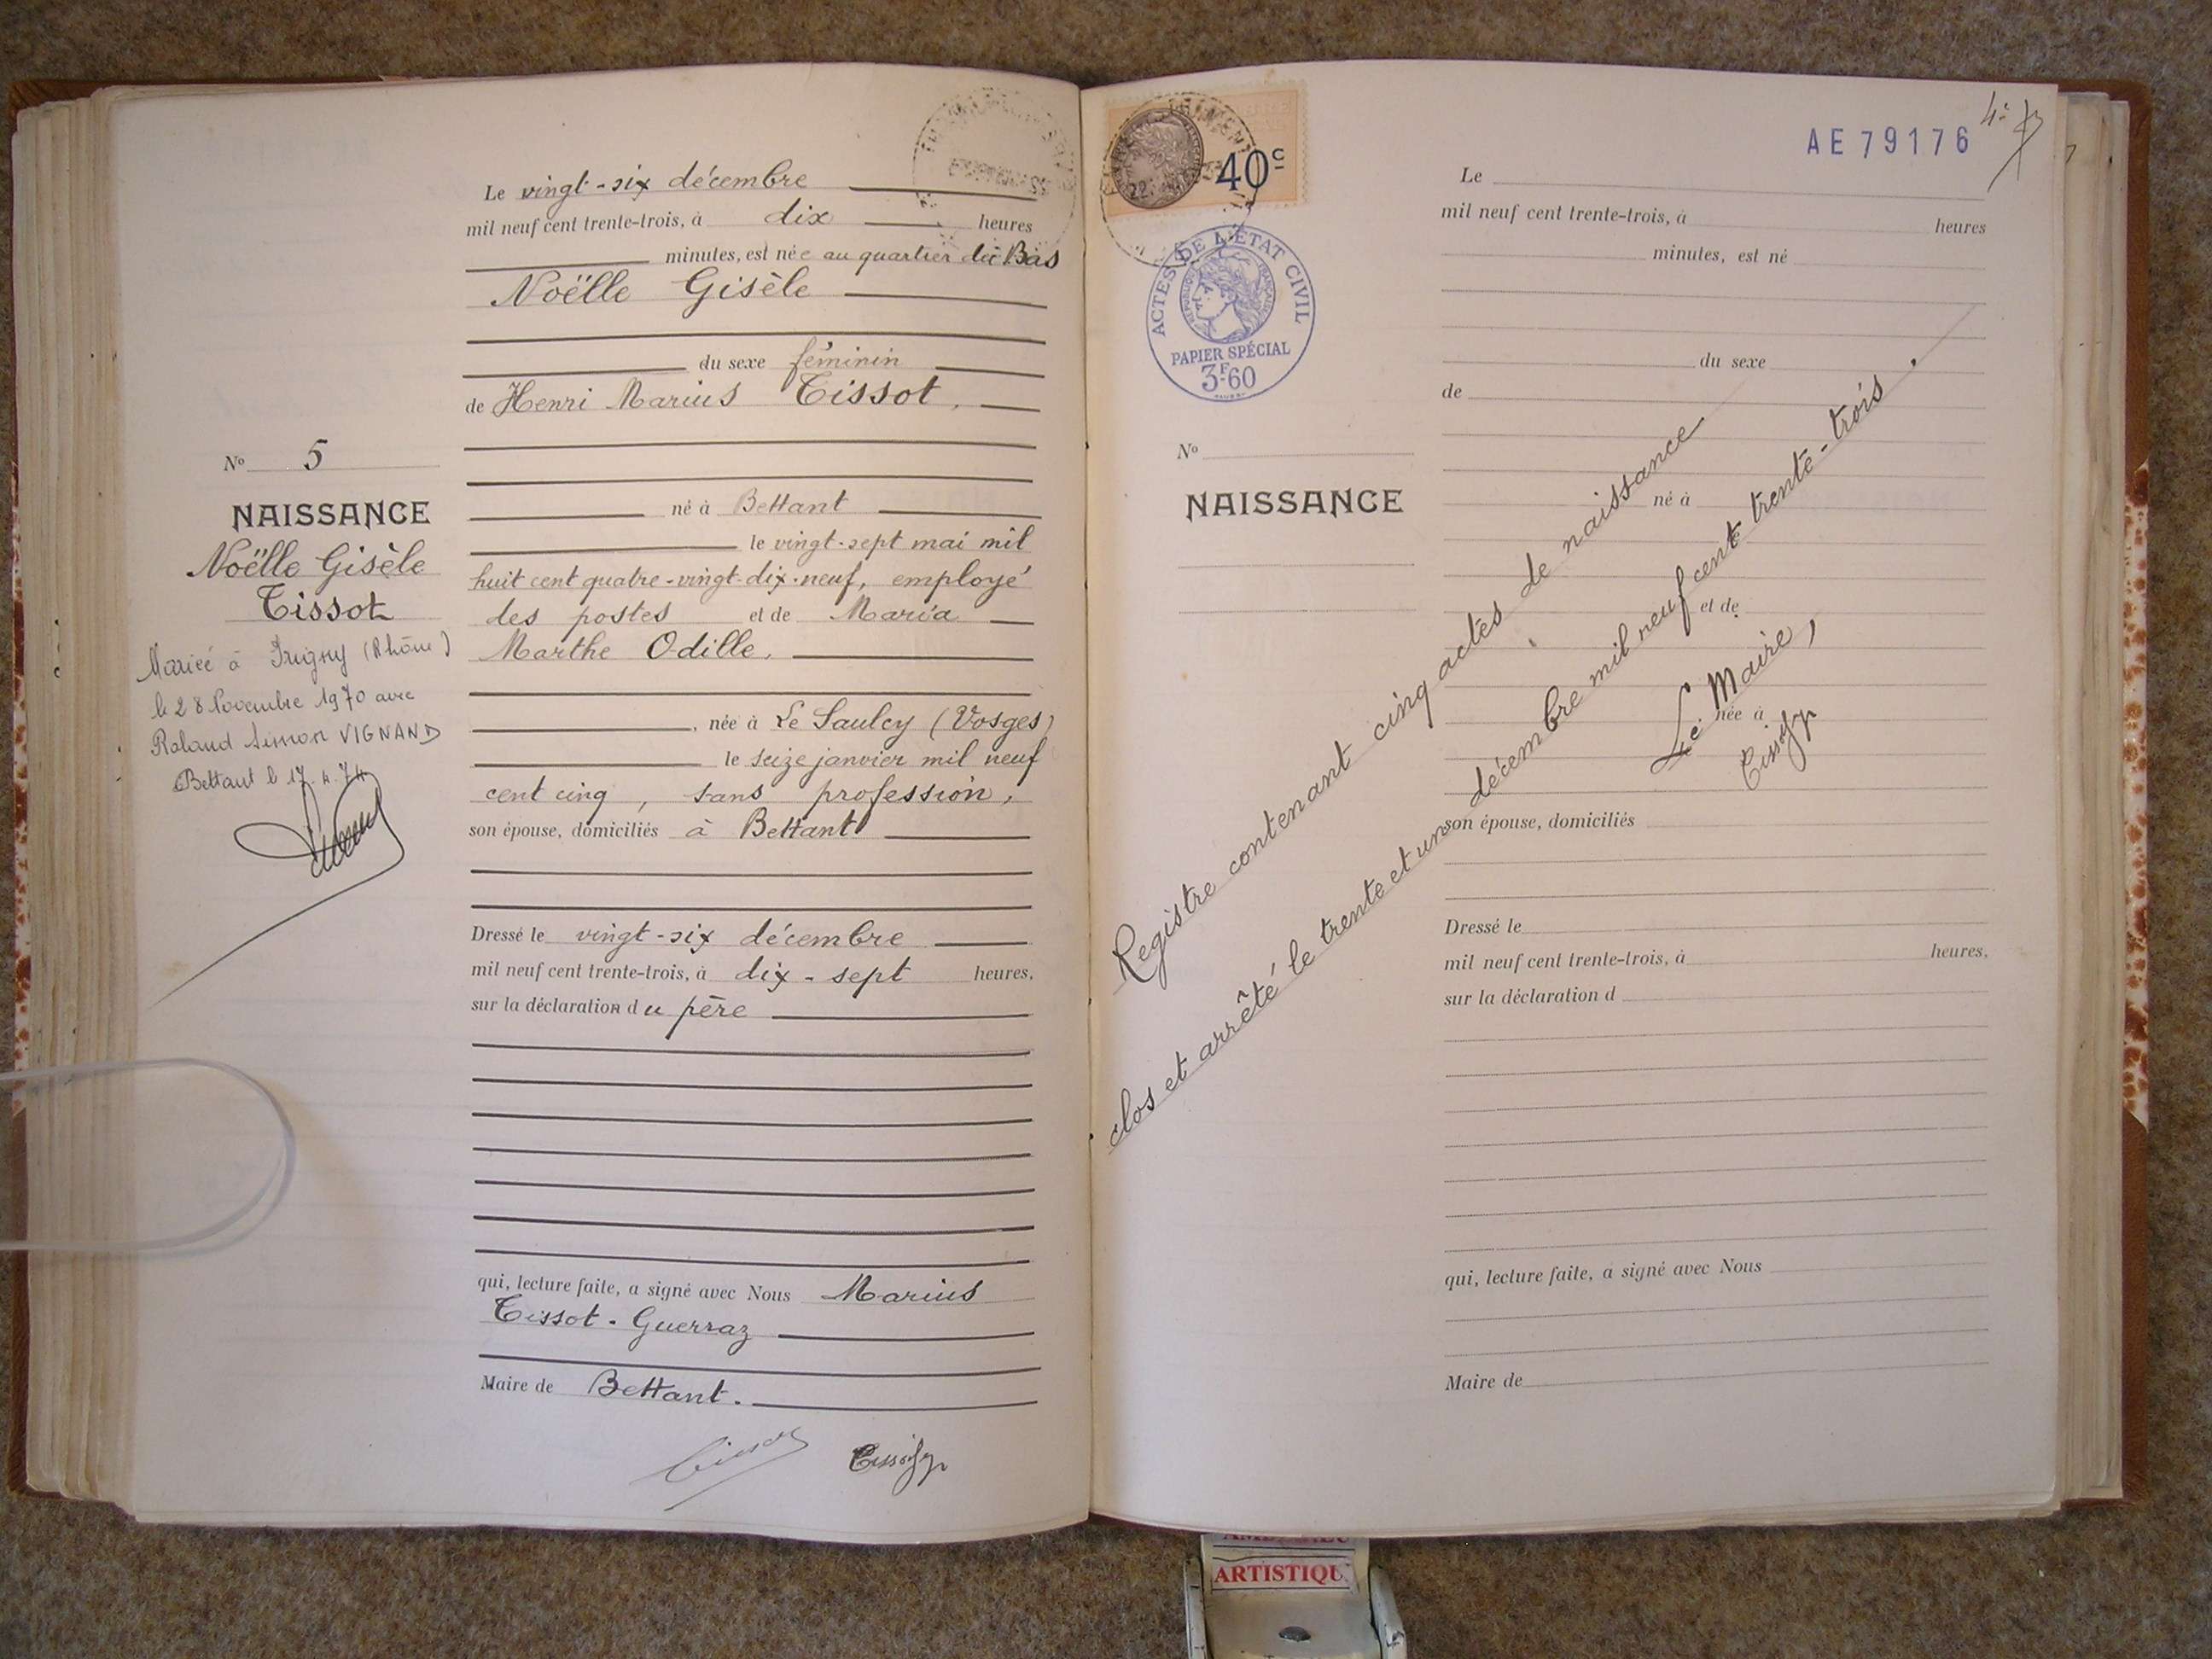 Le vingt-six décembre
mil neuf cent trente-trois, à dix heures
minutes, est née au quartier du Bas
Noëlle Gisèle
du sexe féminin
de Henri Marius Tissot,
né à Bettant
le vingt-sept mai mil
huit cent quatre-vingt-dix-neuf, employé
des postes et de Maria
Marthe Odille,
, née à Le Saulcy (Vosges)
le seize janvier mil neuf
cent cinq, sans profession,
son épouse, domiciliés à Bettant
Dressé le vingt-six décembre
mil neuf cent trente-trois, à dix-sept heures,
sur la déclaration du père
qui, lecture faite, a signé avec Nous Marius
Tissot-Guerraz
Maire de Bettant.
Tissot
No 5
NAISSANCE
Noëlle Gisèle
Tissot
Mariée à Irigny (Rhône)
le 28 Novembre 1970 avec
Roland Simon VIGNAND
Bettant le 17.4.74
40c
ACTES DE L'ÉTAT CIVIL
RÉPUBLIQUE FRANÇAISE
PAPIER SPÉCIAL
3F60
AE 79176
No
NAISSANCE
Le
mil neuf cent trente-trois, à heures
minutes, est né
du sexe
de
né à
et de
née à
son épouse, domiciliés
Dressé le
mil neuf cent trente-trois, à heures,
sur la déclaration d
qui, lecture faite, a signé avec Nous
Maire de
Registre contenant cinq actes de naissance
clos et arrêté le trente et un décembre mil neuf cent trente-trois.
Le Maire,
ARTISTIQU